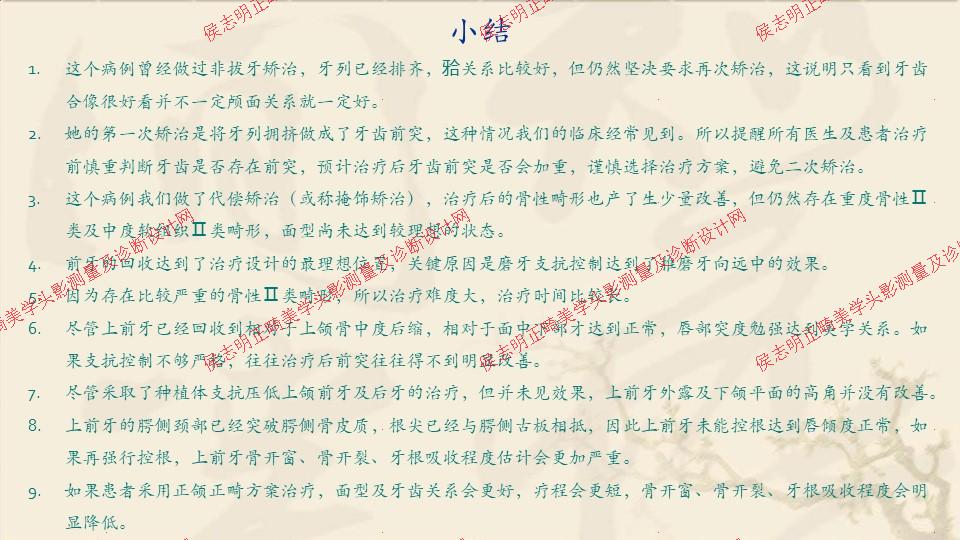 小结
1. 这个病例曾经做过非拔牙矫治，牙列已经排齐，𬌗关系比较好，但仍然坚决要求再次矫治，这说明只看到牙齿
合像很好看并不一定颅面关系就一定好。
2. 她的第一次矫治是将牙列拥挤做成了牙齿前突，这种情况我们的临床经常见到。所以提醒所有医生及患者治疗
前慎重判断牙齿是否存在前突，预计治疗后牙齿前突是否会加重，谨慎选择治疗方案，避免二次矫治。
3. 这个病例我们做了代偿矫治（或称掩饰矫治），治疗后的骨性畸形也产了生少量改善，但仍然存在重度骨性Ⅱ
类及中度软组织Ⅱ类畸形，面型尚未达到较理想的状态。
4. 前牙的回收达到了治疗设计的最理想位置，关键原因是磨牙支抗控制达到了推磨牙向远中的效果。
5. 因为存在比较严重的骨性Ⅱ类畸形，所以治疗难度大，治疗时间比较长。
6. 尽管上前牙已经回收到相对于上颌骨中度后缩，相对于面中下部才达到正常，唇部突度勉强达到美学关系。如
果支抗控制不够严格，往往治疗后前突往往得不到明显改善。
7. 尽管采取了种植体支抗压低上颌前牙及后牙的治疗，但并未见效果，上前牙外露及下颌平面的高角并没有改善。
8. 上前牙的腭侧颈部已经突破腭侧骨皮质，根尖已经与腭侧古板相抵，因此上前牙未能控根达到唇倾度正常，如
果再强行控根，上前牙骨开窗、骨开裂、牙根吸收程度估计会更加严重。
9. 如果患者采用正颌正畸方案治疗，面型及牙齿关系会更好，疗程会更短，骨开窗、骨开裂、牙根吸收程度会明
显降低。
侯志明正畸美学头影测量及诊断设计网
侯志明正畸美学头影测量及诊断设计网